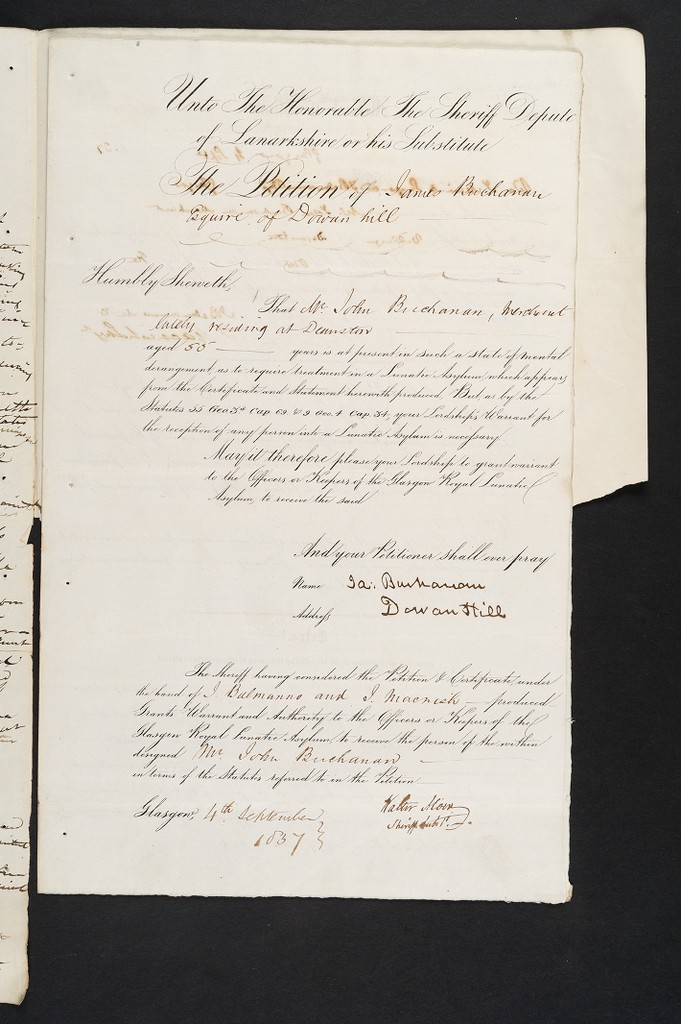 Unto The Honorable The Sheriff Depute
of Lanarkshire or his Substitute
The Petition of James Buchanan
Esquire of Dowan hill
Humbly Sheweth,
That Mr. John Buchanan, Merchant
lately residing at Deanston
aged 55 years is at present in such a state of mental
derangement, as to require treatment in a Lunatic Asylum, which appears
from the Certificate and Statement herewith produced. But, as by the
Statutes 55 Geo. 3d Cap. 69. & 9 Geo. 4 Cap. 34, your Lordship's Warrant for
the reception of any person into a Lunatic Asylum is necessary
May it therefore please your Lordship to grant warrant
to the Officers or Keepers of the Glasgow Royal Lunatic
Asylum, to receive the said
And your Petitioner shall ever pray
Name Ja: Buchanan
Address Dowan Hill
The Sheriff having considered the Petition & Certificate, under
the hand of J. Balmanno and J. Macnish produced
Grants Warrant and Authority to the Officers or Keepers of the
Glasgow Royal Lunatic Asylum, to receive the person of the within
designed Mr. John Buchanan
in terms of the Statutes referred to in the Petition
Glasgow, 4th September
1837
Walter Moir
Sheriff Subt.